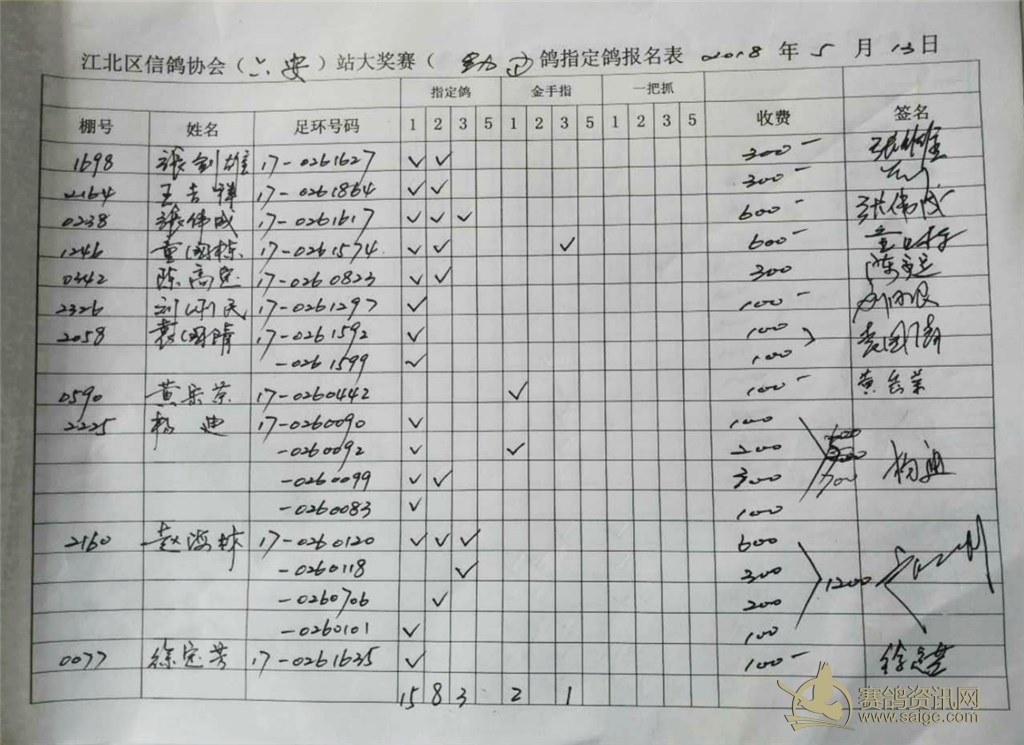 江北区信鸽协会（六安）站大奖赛（ 鸽指定鸽报名表 2018 年 5 月 13日
指定鸽 金手指 一把抓
棚号 姓名 足环号码 1 2 3 5 1 2 3 5 1 2 3 5 收费 签名
1698 張剑雄 17-0261627 ✓ ✓ 300-
2164 王吉祥 17-0261864 ✓ ✓ 300-
0238 張伟成 17-0261617 ✓ ✓ ✓ 600- 张伟成
1246 童国栋 17-0261574 ✓ ✓ ✓ 600-
0342 陈高定 17-0260823 ✓ ✓ 300 陈高定
2326 刘 民 17-0261297 ✓ 100-
2058 袁国晴 17-0261592 ✓ 100 袁国晴
-0261599 ✓ 100
0590 黄岳荣 17-0260442 ✓ 100- 黄岳荣
2225 杨迪 17-0260090 ✓ 100
-0260092 ✓ ✓ 200
-0260099 ✓ ✓ 300 700 杨迪
-0260083 ✓ 100
2160 赵海林 17-0260120 ✓ ✓ ✓ 600
-0260118 ✓ 300 1200
-0260706 ✓ 200
-0260101 ✓ 100
0077 徐定芳 17-0261635 ✓ 100- 徐定芳
15 8 3 2 1
赛鸽资讯网
www.saige.com